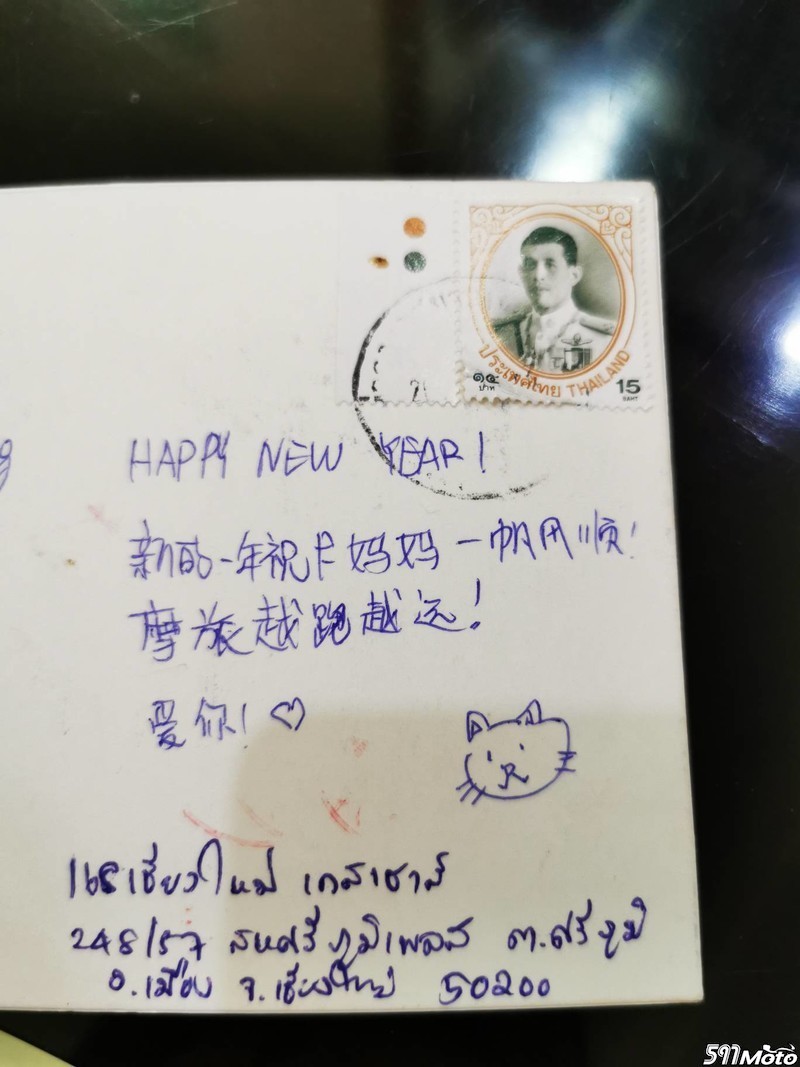 ประเทศไทย THAILAND
๑๕ 15
บาท BAHT
HAPPY NEW YEAR!
新的一年祝卡妈妈一帆风顺!
摩旅越跑越远!
爱你! ♡
168 เชียงใหม่ เกสเฮาส์
248/57 สหศรีภูมิเพลส ต.ศรีภูมิ
อ.เมือง จ.เชียงใหม่ 50200
591Moto